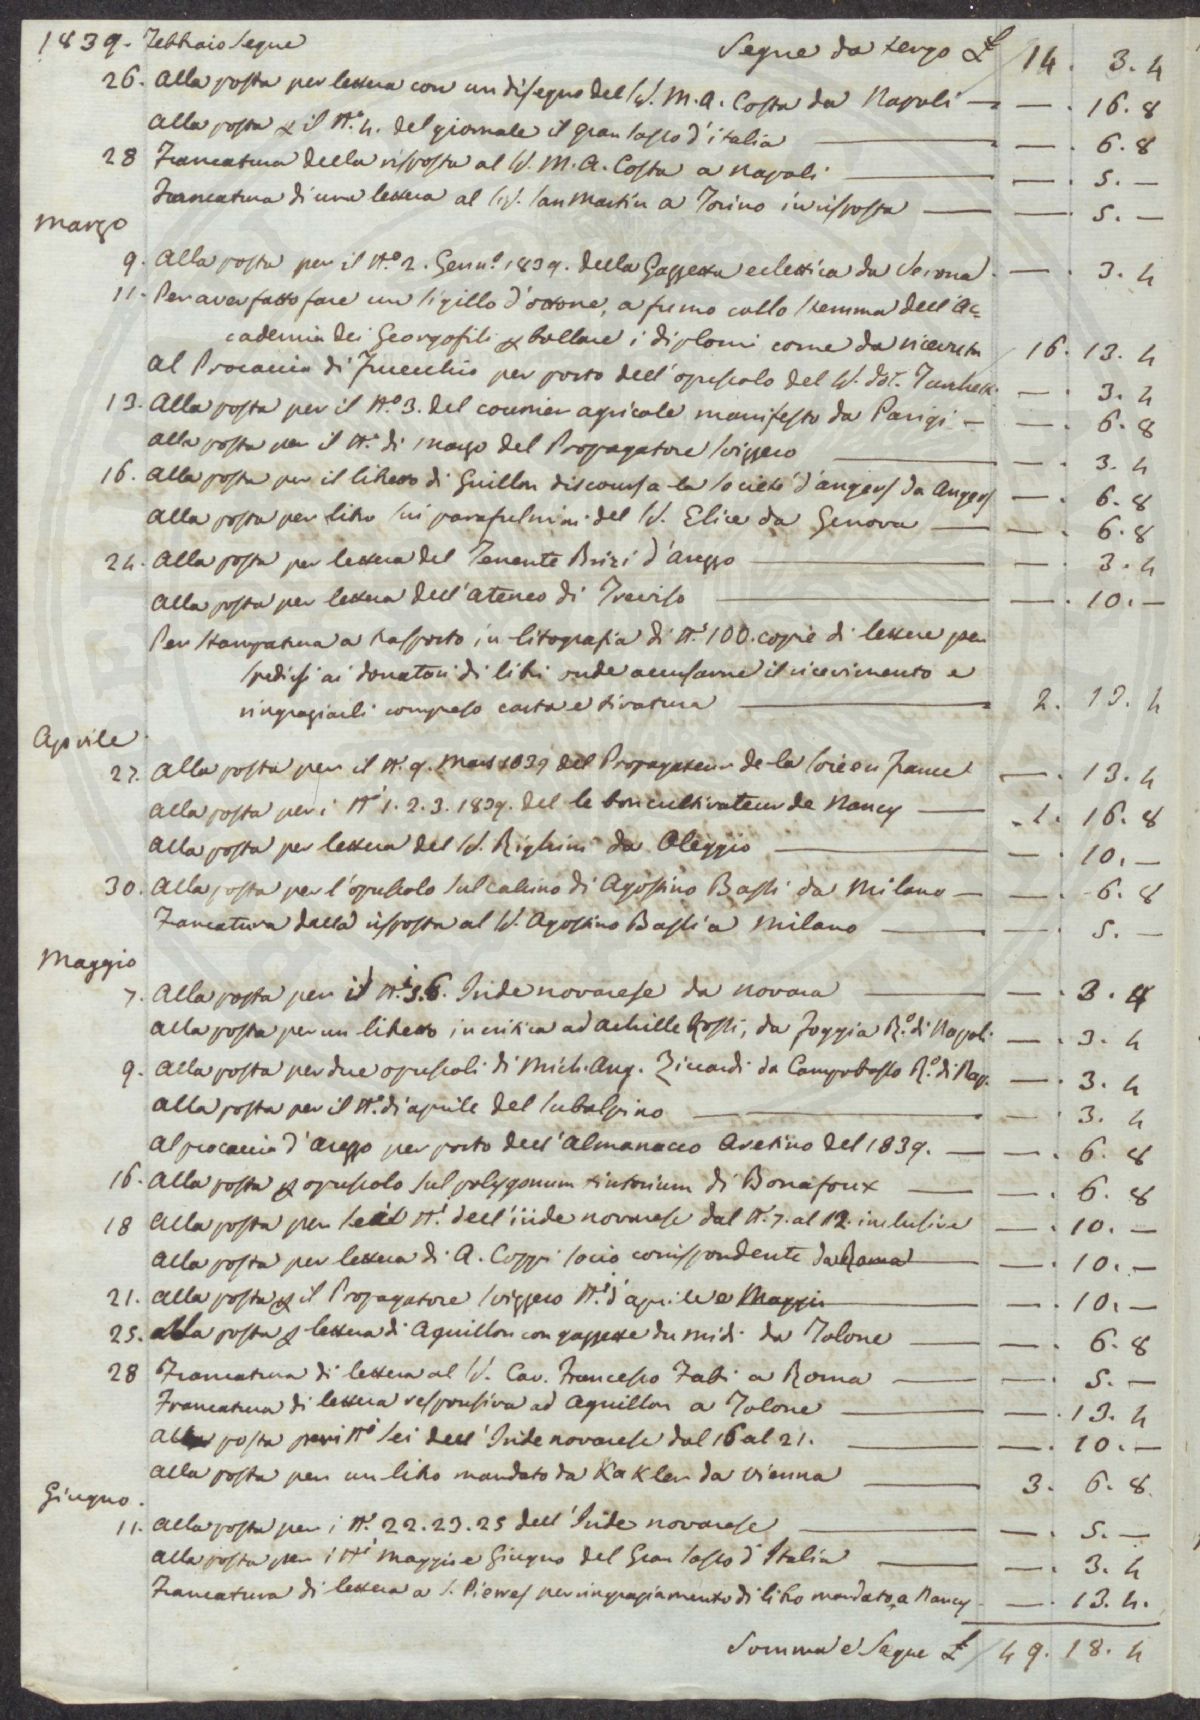 1839. Febbraio Segue Segue da tergo £ 14. 3. 4
26. Alla posta per lettera con un disegno del S.r M. A. Costa da Napoli — — . 16. 8
Alla posta p il N.o 4. del giornale il gran sasso d'italia — — . 6. 8
28 Francatura della risposta al S.r M. A. Costa a Napoli — — . 5. —
Francatura di una lettera al S.r San Martin a Torino in risposta — — . 5. —
Marzo
9. Alla posta per il N.o 2. Genn.o 1839. della Gazzetta eclettica da Verona — . 3. 4
11. Per aver fatto fare un sigillo d'ottone, a fumo collo stemma dell'Ac=
cademia dei Georgofili p bollare i diplomi come da ricevuta 16. 13. 4
Al Procaccia di Fucecchio per porto dell'opuscolo del S.r Dot. — . 3. 4
13. Alla posta per il N.o 3. del courrier agricole manifesto da Parigi — — . 6. 8
Alla posta per il N.o di marzo del Propagatore svizzero — — . 3. 4
16. Alla posta per il libretto di Guillon discours a la Societé d'angers da Angers — . 6. 8
Alla posta per libro sui parafulmini del S.r Elice da Genova — — . 6. 8
24. Alla posta per lettera del Tenente Brizi d'Arezzo — — . 3. 4
Alla posta per lettera dell'Ateneo di Treviso — — . 10. —
Per stampatura a trasporto in litografia di N.o 100. copie di lettere per
spedirsi ai donatori di libri onde accusarne il ricevimento e
ringraziarli compreso carta e tiratura — 2. 13. 4
Aprile
27. Alla posta per il N.o 9. Mars 1839 del Propagateur de la Soie en france — . 13. 4
Alla posta per i N.i 1. 2. 3. 1839. del le bon cultivateur de Nancy — 1. 16. 8
Alla posta per lettera del S.r Righini da Oleggio — — . 10. —
30. Alla posta per l'opuscolo sul calcino di Agostino Bassi da Milano — — . 6. 8
Francatura della risposta al S.r Agostino Bassi a Milano — — . 5. —
Maggio
7. Alla posta per il N.i 5. 6. Iride novarese da Novara — — . 3. 4
Alla posta per un libretto in critica ad Achille Rossi, da Foggia R.o di Napoli — . 3. 4
9. Alla posta per due opuscoli di Mich. Ang. Ziccardi da Campobasso R.o di Nap. — . 3. 4
Alla posta per il N.o di aprile del Subalpino — — . 3. 4
Al procaccia d'Arezzo per porto dell'Almanacco Aretino del 1839. — — . 6. 8
16. Alla posta p opuscolo sul polygonum tintorium di Bonafoux — — . 6. 8
18 Alla posta per sei N.i dell'iride novarese dal N. 7. al 12. inclusive — . 10. —
Alla posta per lettera di A. Coppi socio corrispondente da Roma — — . 10. —
21. Alla posta p il Propagatore svizzero N.i d'aprile e Maggio — — . 10. —
25. Alla posta p lettera di Aguillon con gazzette du midi da Tolone — — . 6. 8
28 Francatura di lettera al S.r Cav. Francesco Fabi a Roma — — . 5. —
Francatura di lettera responsiva ad Aguillon a Tolone — — . 13. 4
Alla posta per i N.i sei dell'Iride novarese dal 16 al 21. — — . 10. —
Alla posta per un libro mandato da Kakler da Vienna — 3. 6. 8
Giugno.
11. Alla posta per i N.i 22. 23. 25 dell'Iride novarese — — . 5. —
Alla posta per i N.i Maggio e Giugno del Gran Sasso d'Italia — — . 3. 4
Francatura di lettera a S. Pierres per ringraziamento di libro mandato a Nancy — . 13. 4.
Somma e Segue £ 49. 18. 4